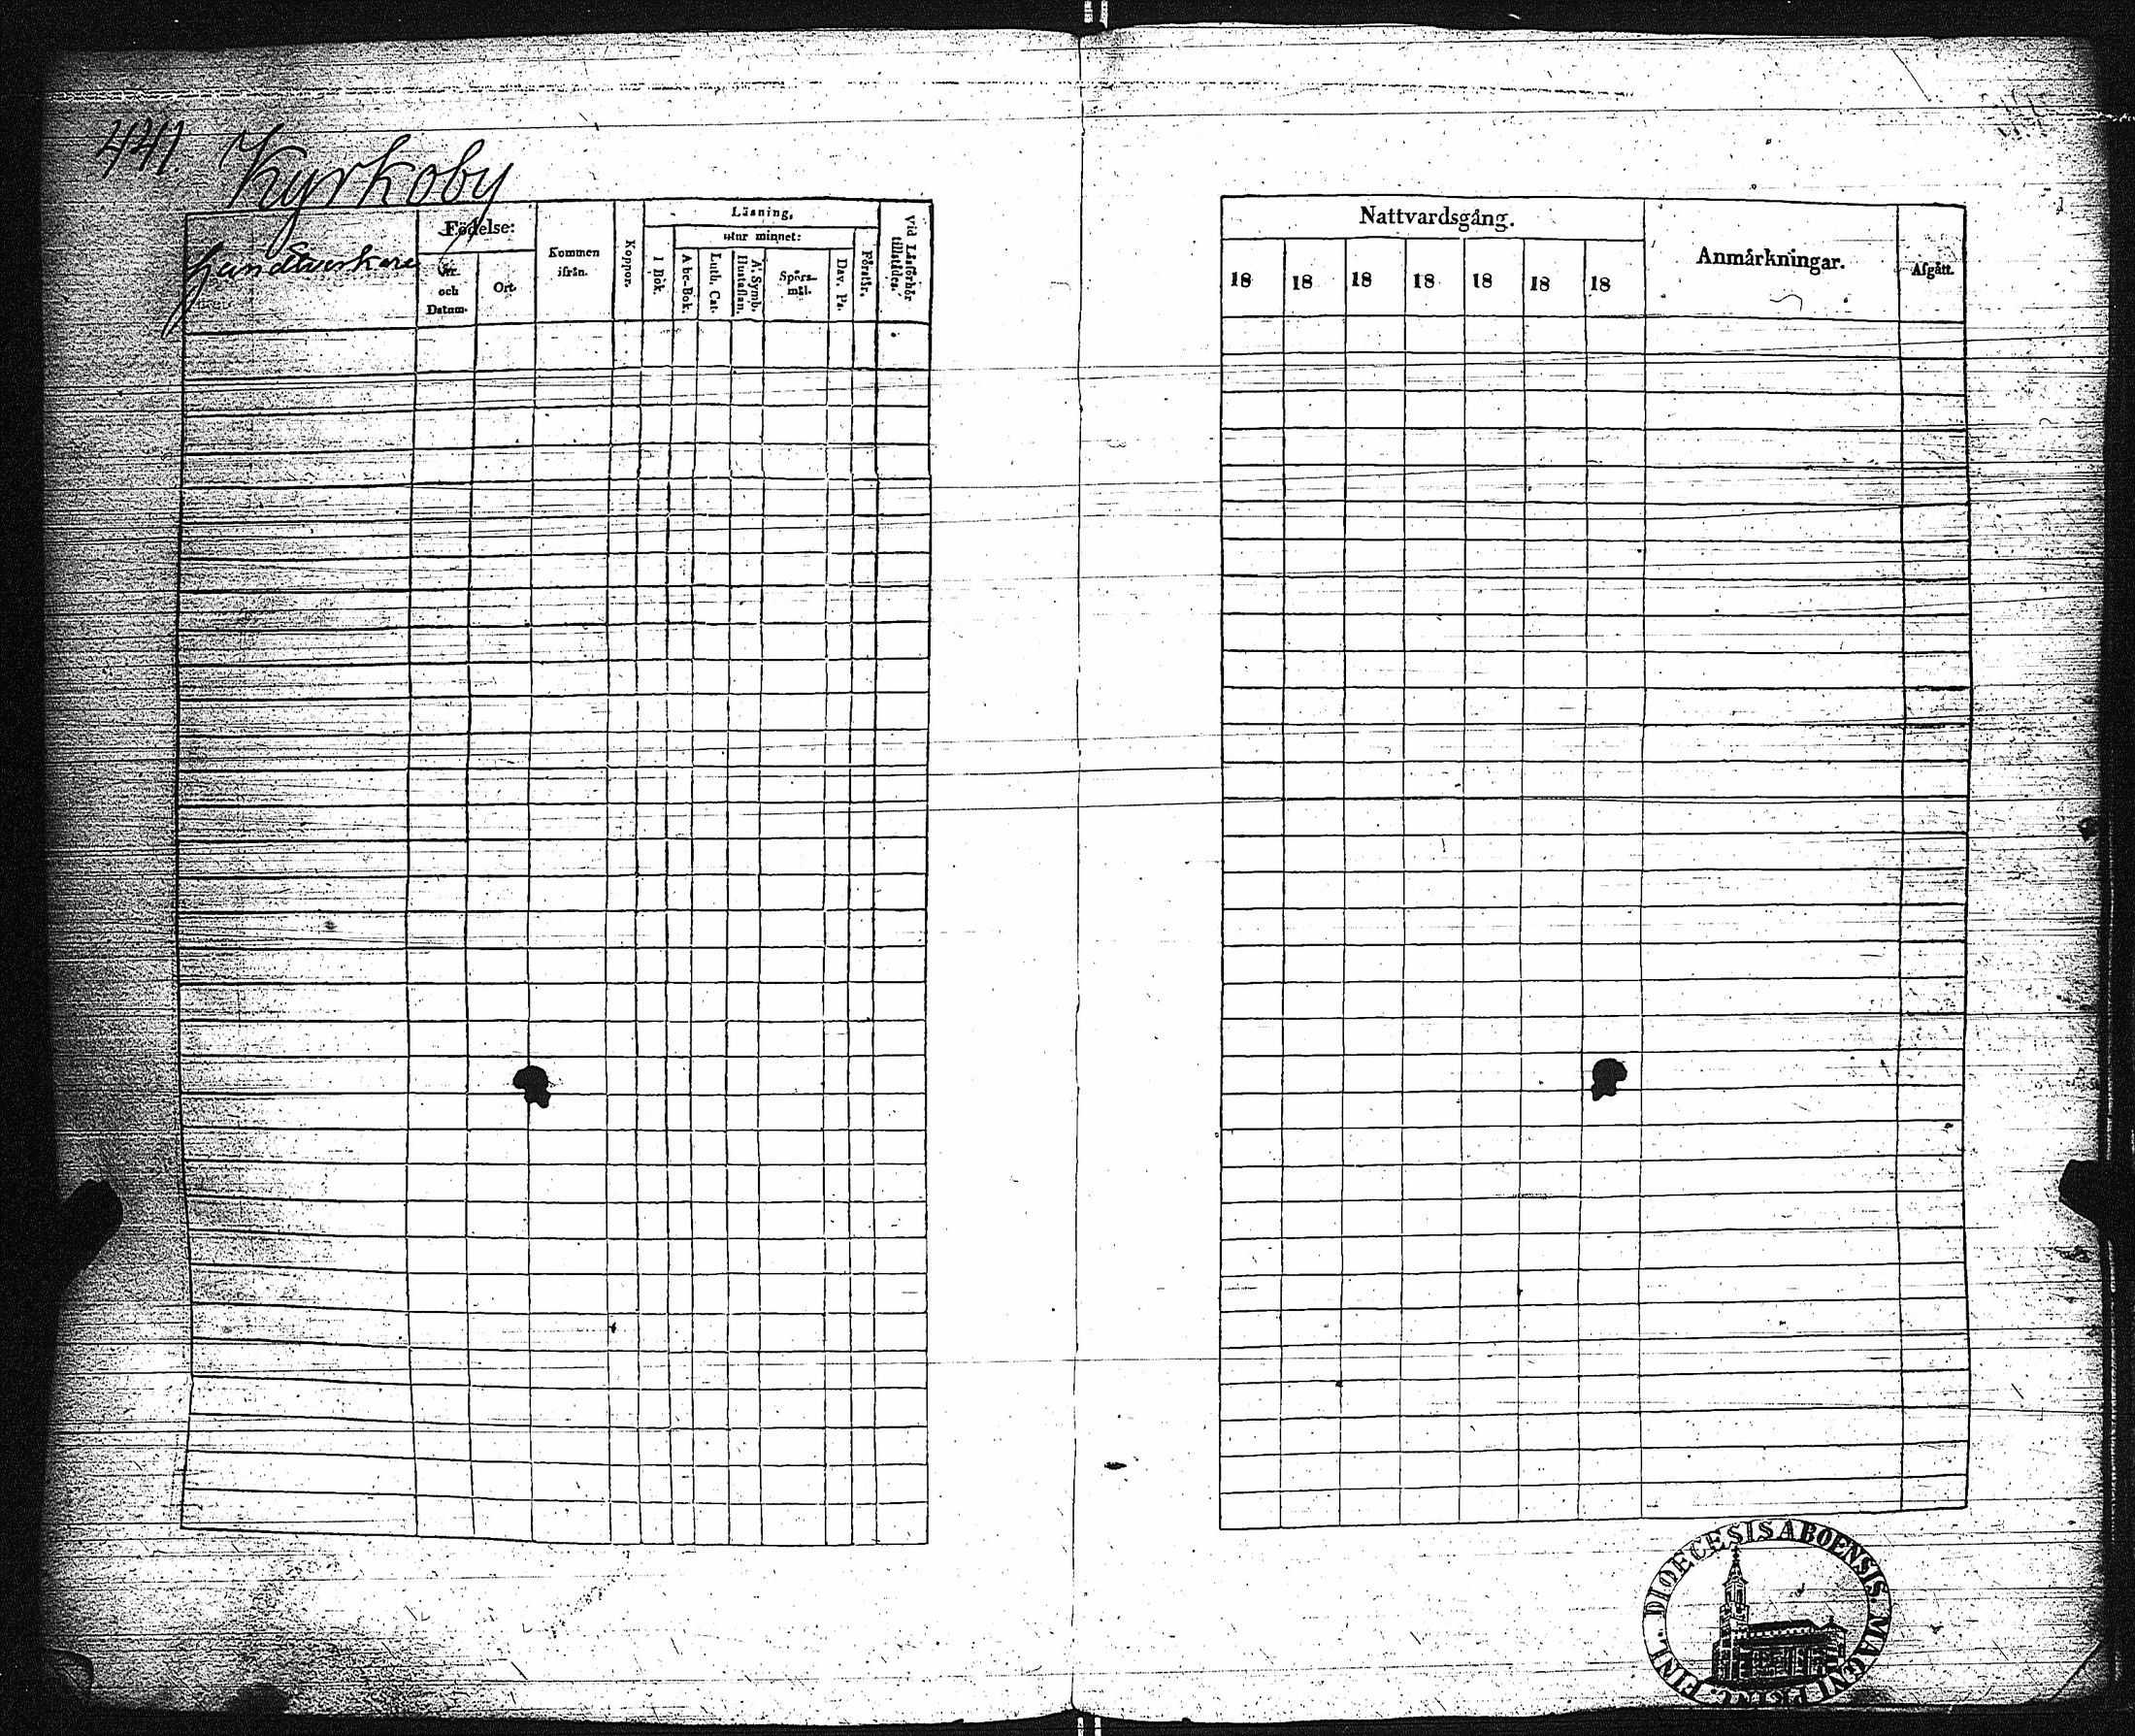 441. Kyrkoby
Handtverkare
Födelse:
År och Datum.
Ort.
Kommen ifrån.
Koppor.
Läsning,
utur minnet:
I Bok.
Abc-Bok.
Luth. Cat.
A. Symb. Hustaflan.
Spörsmål.
Dav. Ps.
Förstår.
Vid Läsförhör tillstädes.
Nattvardsgång.
18 18 18 18 18 18 18
Anmärkningar.
Afgått.
DIOECESIS ABOENSIS. MAGNI
FINL.